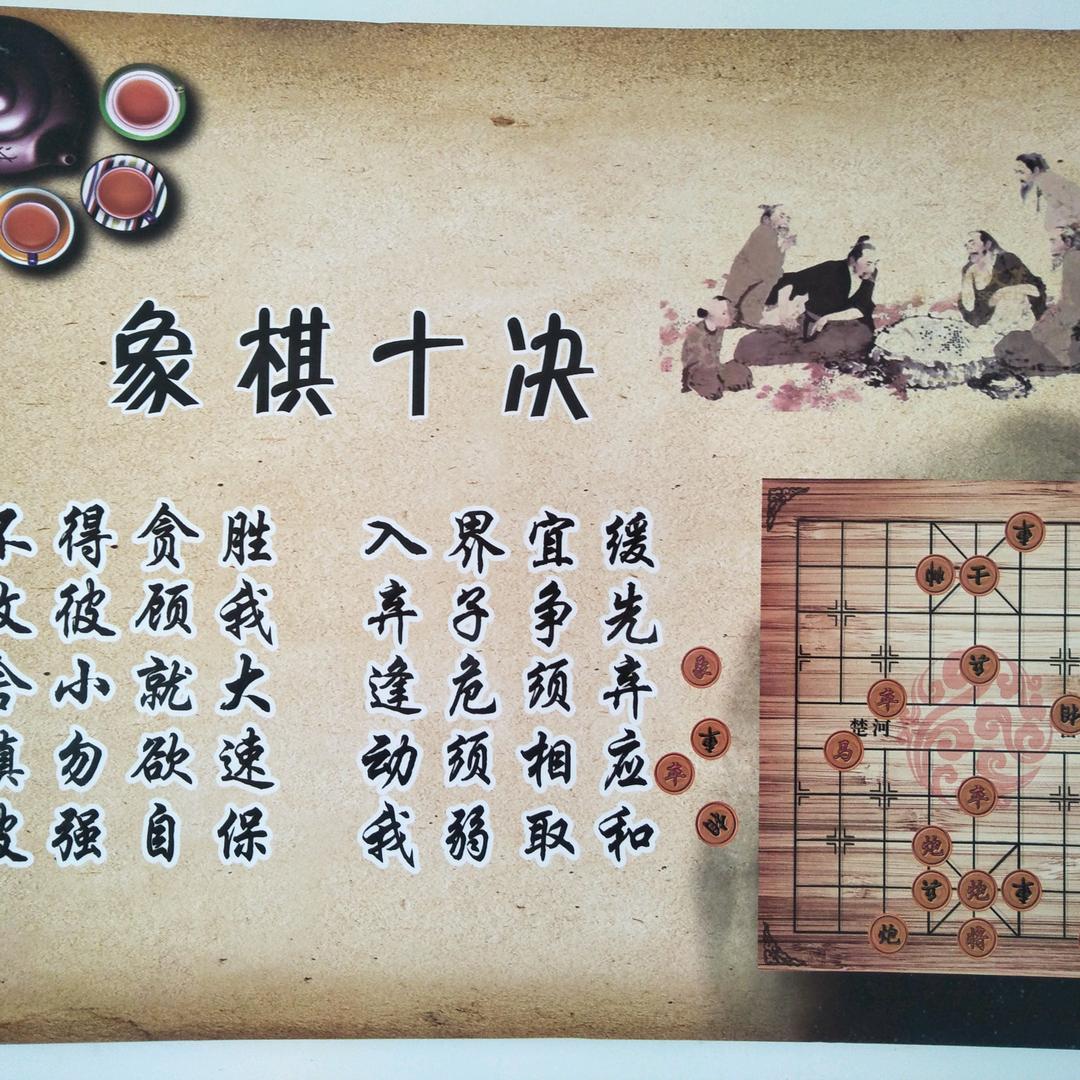 象棋十决
不得贪胜 入界宜缓
顾我 弃子争先
舍小就大 逢危须弃
勿欲速 动须相应
强自保 我弱取和
象
車
卒
車
帅 士
兵
卒
相
楚河
马
卒
炮
兵 炮 車
炮 将